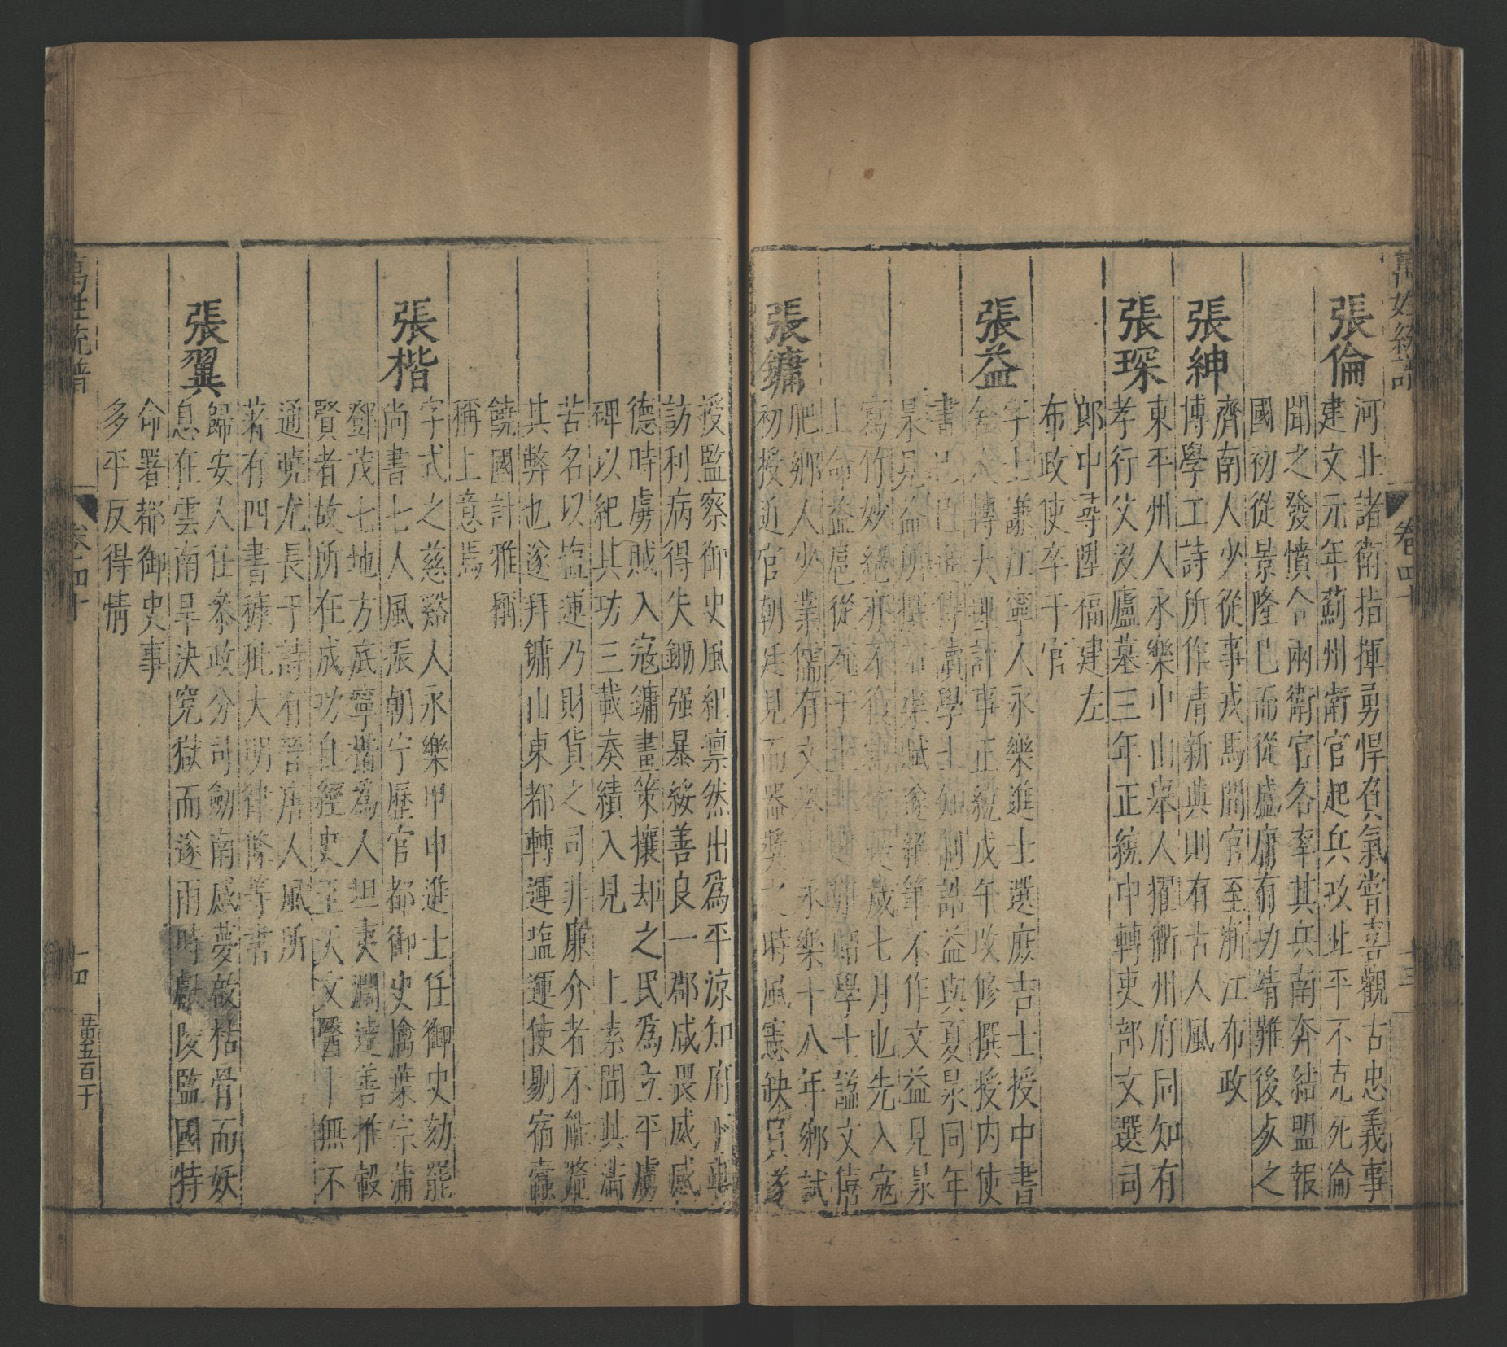 萬姓統譜
卷四十
十三
張倫
河北諸衛指揮勇悍負氣嘗喜觀古忠義事
建文元年薊州衛官起兵攻北平不克死倫
聞之發憤合兩衛官各率其兵南奔結盟報
國初從景隆已而從盛庸有功靖難後亥之
張紳
濟南人少從事戎馬間官至浙江布政
博學工詩所作清新典則有古人風
張琛
東平州人永樂中山舉人擢衢州府同知有
孝行父沒廬墓三年正統中轉吏部文選司
郎中尋陞福建左
布政使卒于官
張益
字士謙江寧人永樂進士選庶吉士授中書
舍人轉大理評事正統戊午改修撰授內使
書己巳進侍讀學士知制誥益與夏昶同年
昶見益所撰石渠賦遂輟筆不作文益見昶
寫竹妙絕亦不復寫竹是歲七月也先入寇
上命益扈從死于土木贈學士謚文僖
張鏞
肥鄉人少業儒有文名永樂十八年鄉試
初授近官朝廷見而器獎之時風憲缺員遂
授監察御史風紀凛然出為平涼知府
訪利病得失鋤强暴綏善良一郡咸畏威感
德時虜賊入寇鏞畫策攘却之民為立平虜
碑以紀其功三載奏績入見 上素聞其清
苦名以塩運乃財貨之司非廉介者不能釐
其弊也遂拜鏞山東都轉運塩運使剔宿蠹
饒國計雅稱
稱上意焉
張楷
字式之慈谿人永樂甲申進士任御史劾罷
尚書七人風振朝宁歷官都御史擒葉宗蒲
鄧茂七地方底寧楷為人坦夷濶達善推轂
賢者故所在成功自經史至天文醫卜無不
通曉尤長于詩有晉唐人風所
著有四書裨批大明律條等書
張翼
歸安人任參政分司劍南感夢敎枯骨而妖
息在雲南旱決寃獄而遂雨時獻陵監國特
命署都御史事
多平反得情
萬姓統譜
卷四十
十四
黃五百干